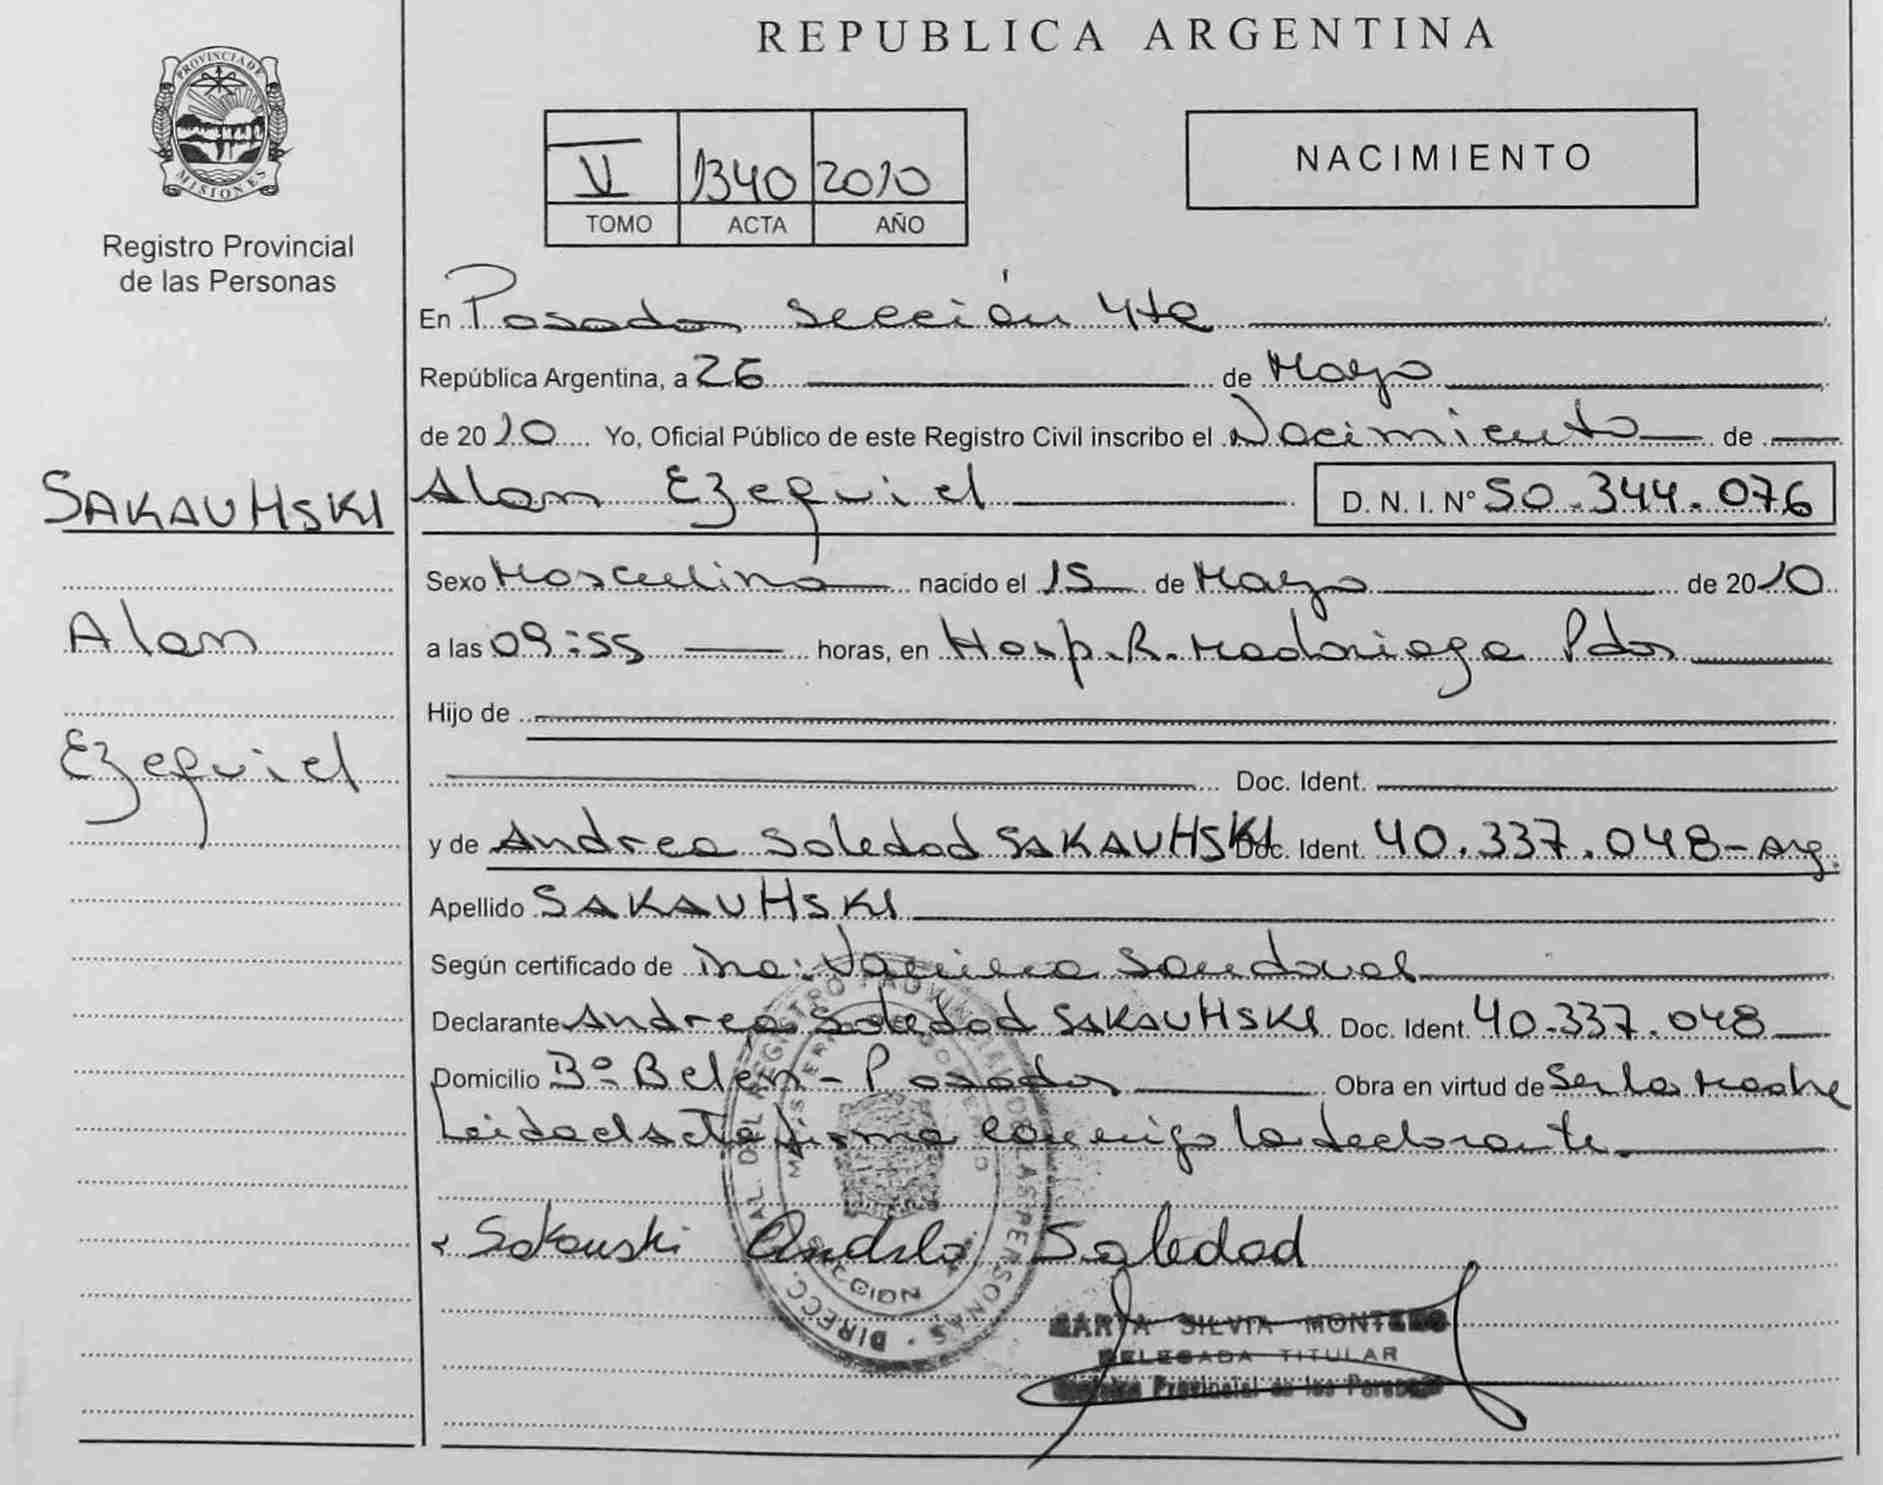 REPUBLICA ARGENTINA
PROVINCIA DE
MISIONES
Registro Provincial
de las Personas
V 1340 2010
TOMO ACTA AÑO
NACIMIENTO
En Posadas sección 4ta
República Argentina, a 26 de Mayo
de 2010 Yo, Oficial Público de este Registro Civil inscribo el Nacimiento de
SAKAUHSKI
Alan
Ezequiel
Alan Ezequiel D. N. I. Nº 50.344.076
Sexo Masculino nacido el 15 de Mayo de 2010
a las 09:55 horas, en Hosp. R. Madariaga Pdas
Hijo de
Doc. Ident.
y de Andrea Soledad SAKAUHSKI Doc. Ident. 40.337.048-Arg.
Apellido SAKAUHSKI
Según certificado de Sandoval
Declarante Andrea Soledad SAKAUHSKI Doc. Ident. 40.337.048
Domicilio Bº Belén - Posadas Obra en virtud de Ser la Madre
Leida el acta firma conmigo la declarante.
Sakauski Andrea Soledad
MARTA SILVIA MONTERO
DELEGADA TITULAR
Registro Provincial de las Personas